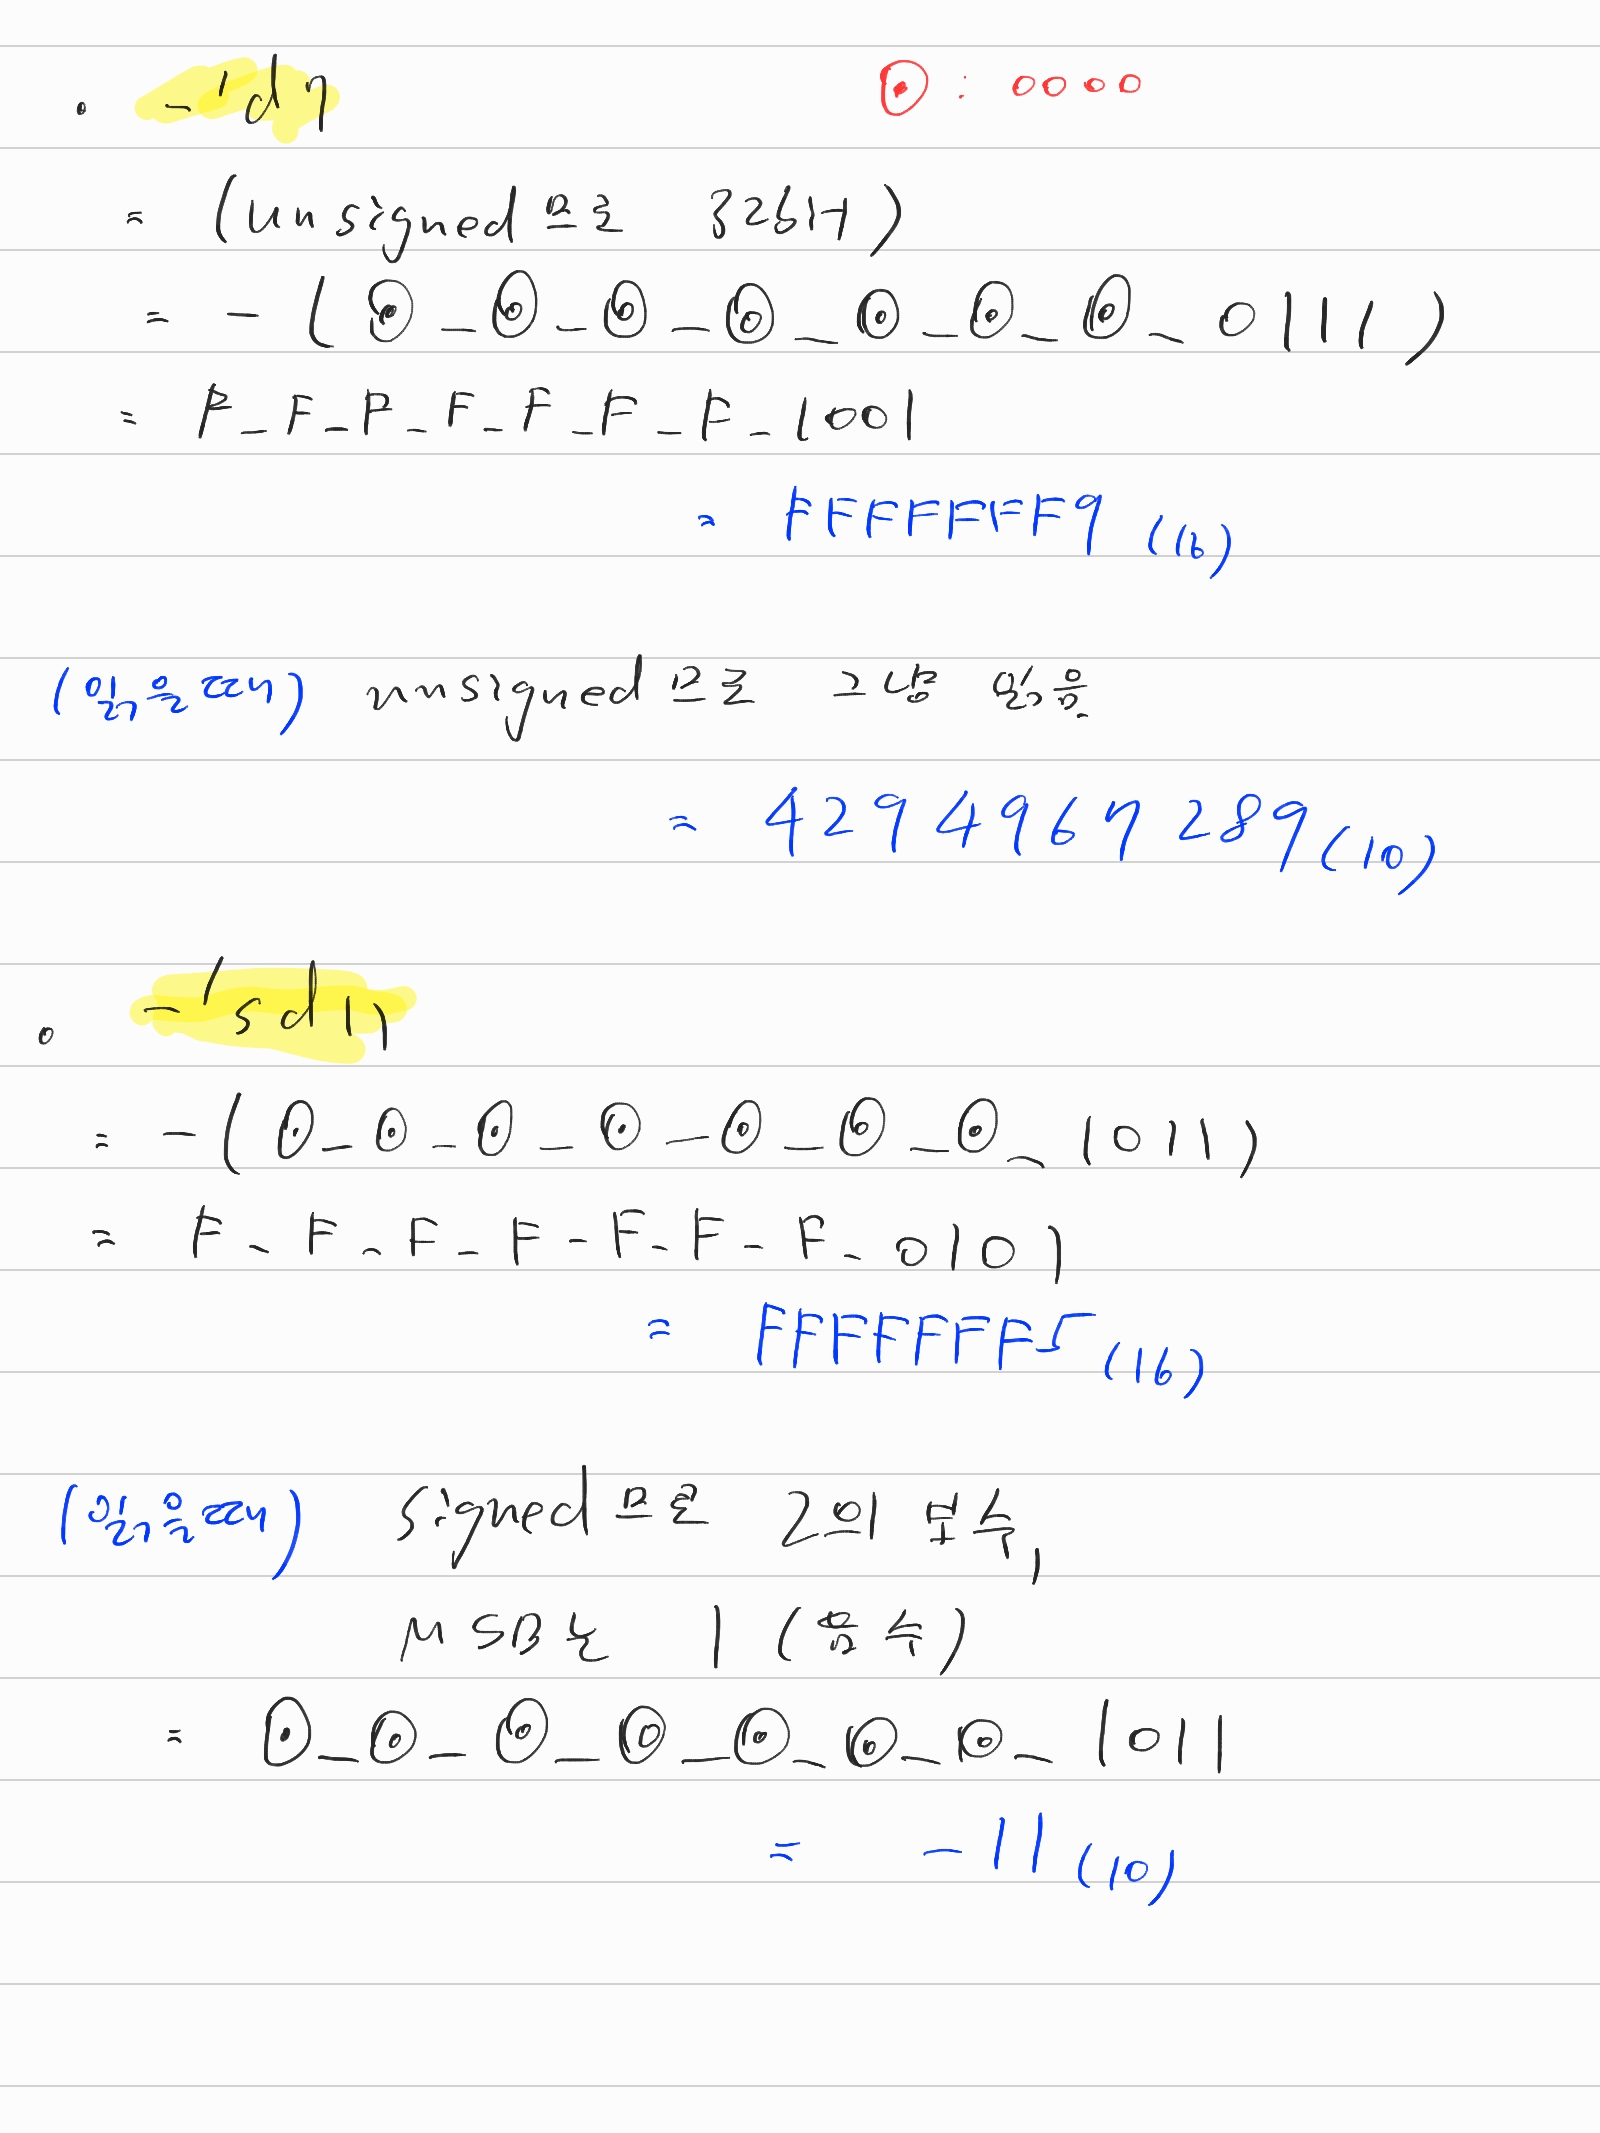 • -'d7
⊙ : 0000
= (unsigned 므로 32bit)
= - ( ⊙_⊙_⊙_⊙_⊙_⊙_⊙_0111 )
= F_F_F_F_F_F_F_1001
= FFFFFFF9 (16)
(읽을때) unsigned 므로 그냥 읽음.
= 4294967289 (10)
• -'sd11
= - ( ⊙_⊙_⊙_⊙_⊙_⊙_⊙_1011 )
= F_F_F_F_F_F_F_0101
= FFFFFFF5 (16)
(읽을때) signed 므로 2의 보수,
MSB는 1 (음수)
= ⊙_⊙_⊙_⊙_⊙_⊙_⊙_1011
= -11 (10)